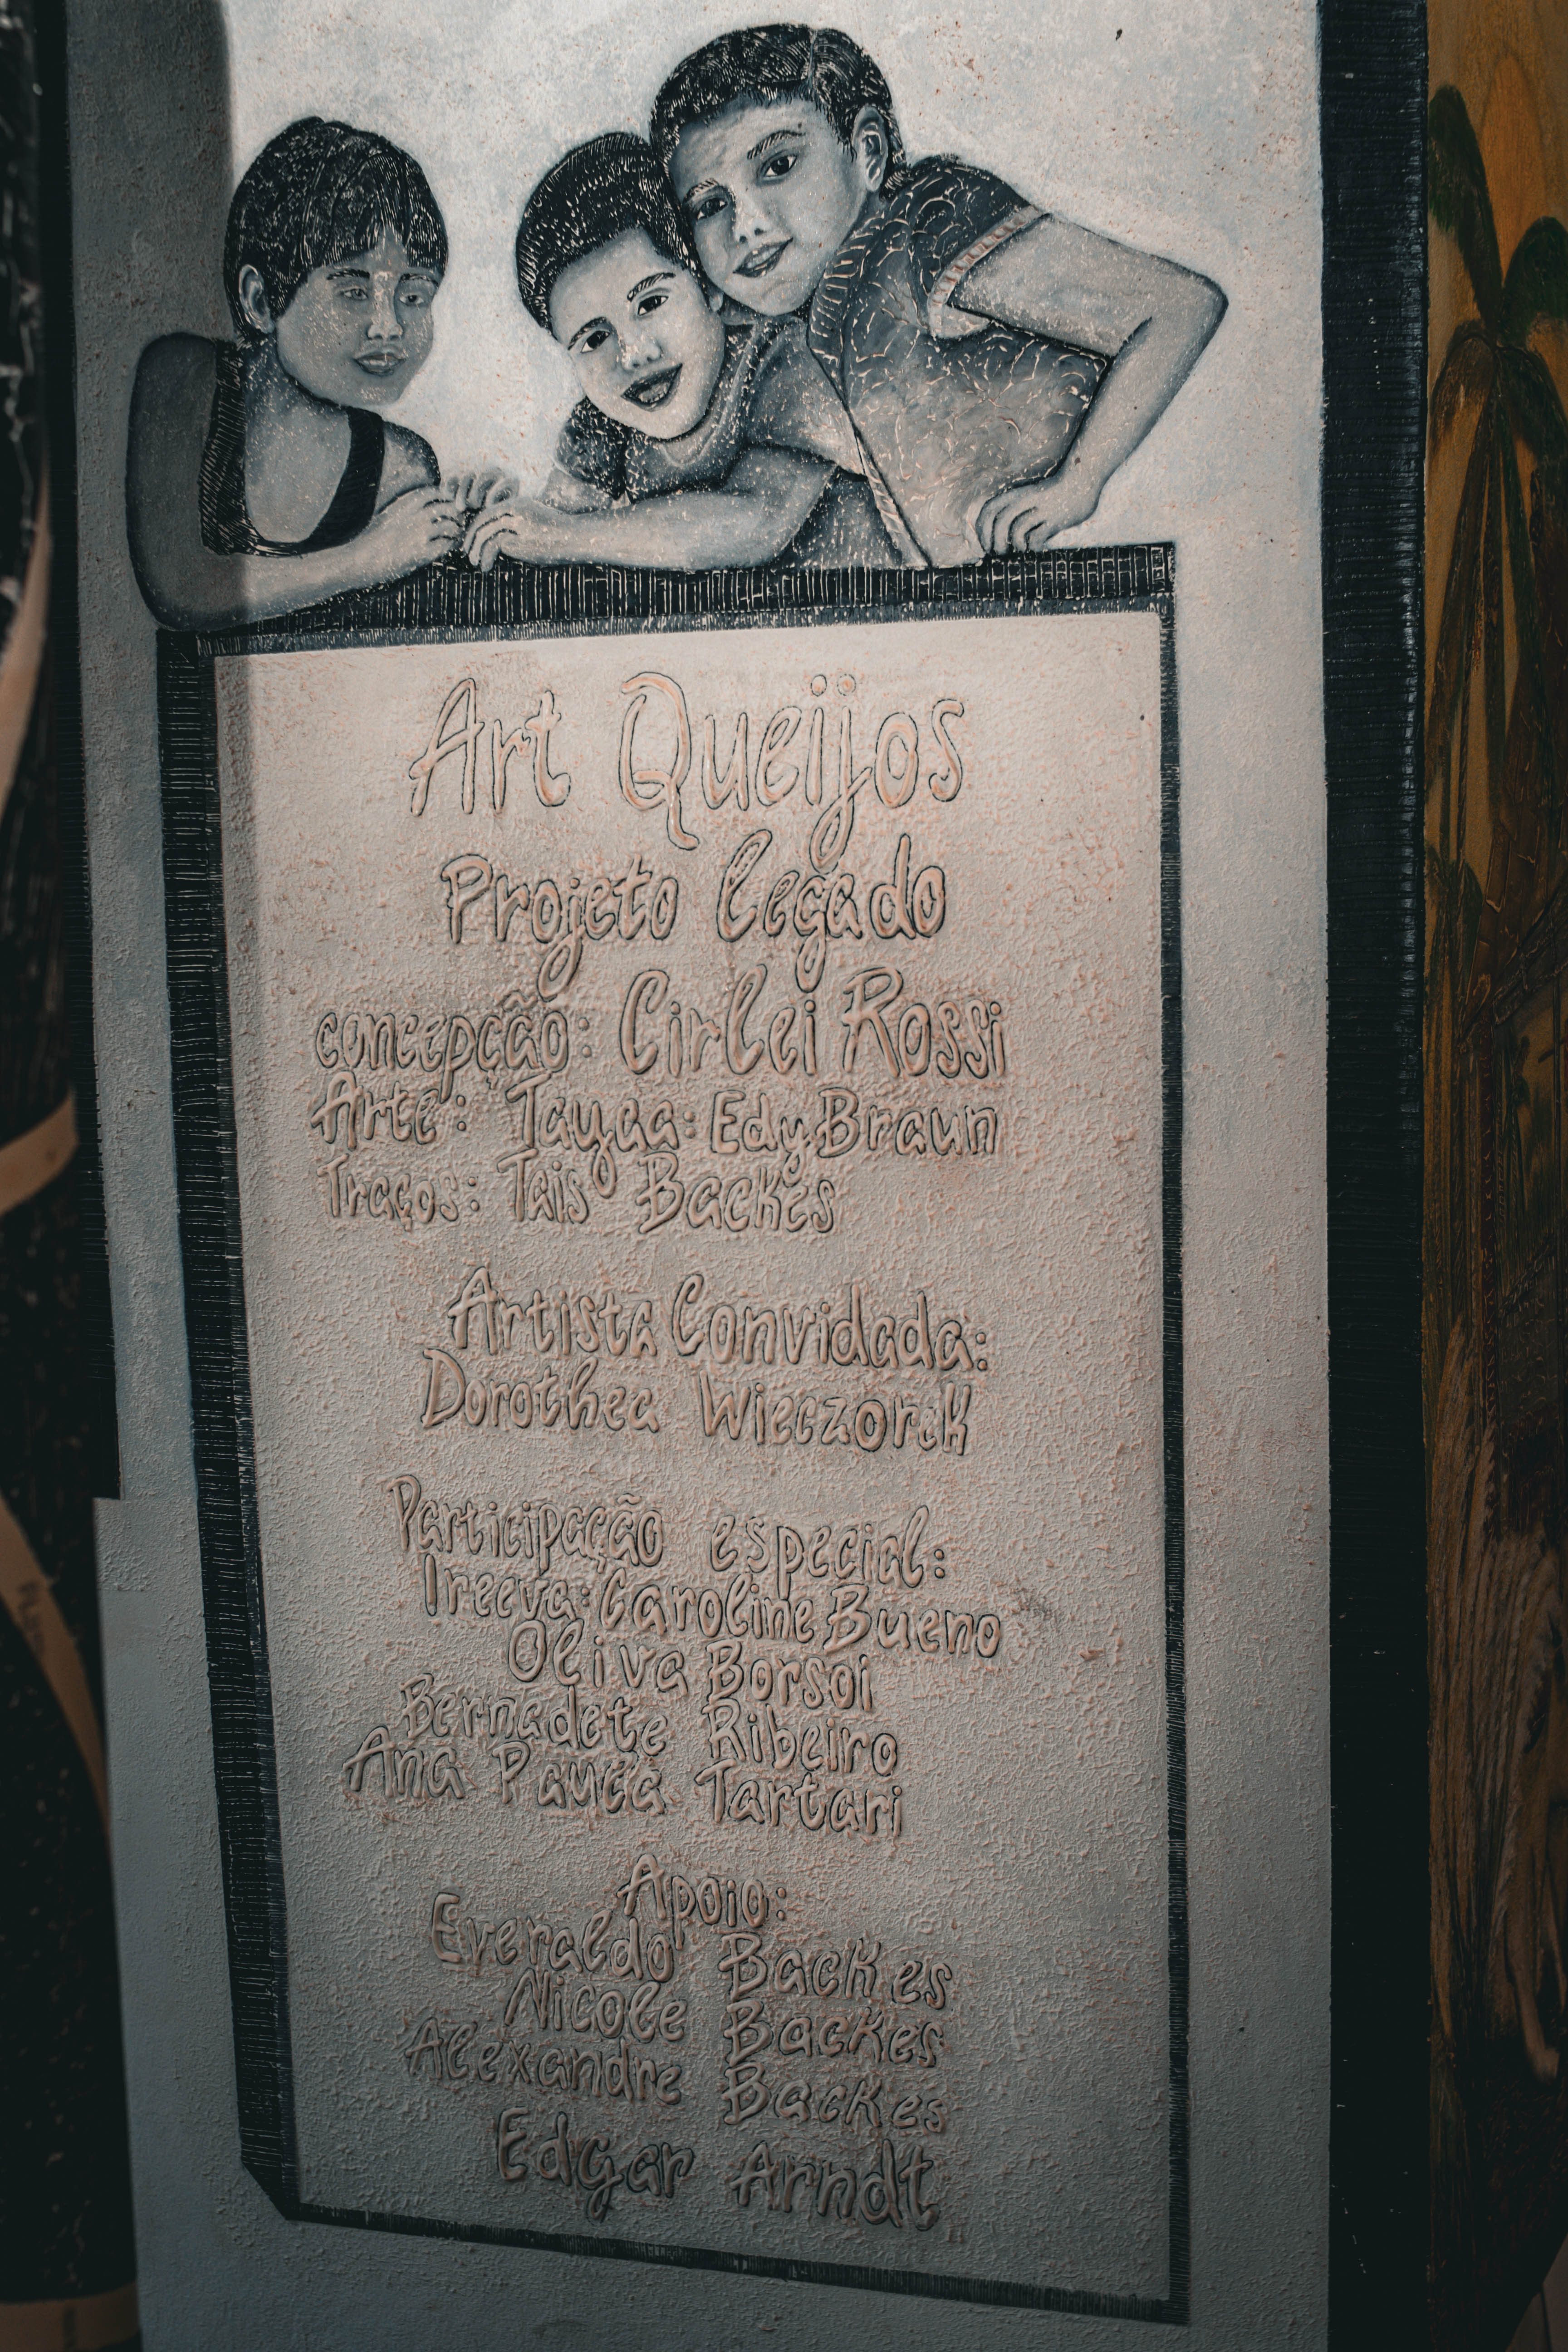 Art Queijos
Projeto legado
concepção: Cirlei Rossi
Arte: Tayaa: Edy Braun
Traços: Tais Backes
Artista Convidada:
Dorothea Wieczorek
Participação especial:
Ireeva: Caroline Bueno
Oliva Borsoi
Bernadete Ribeiro
Ana Paula Tartari
Apoio:
Everaldo Backes
Nicole Backes
Alexandre Backes
Edgar Arndt